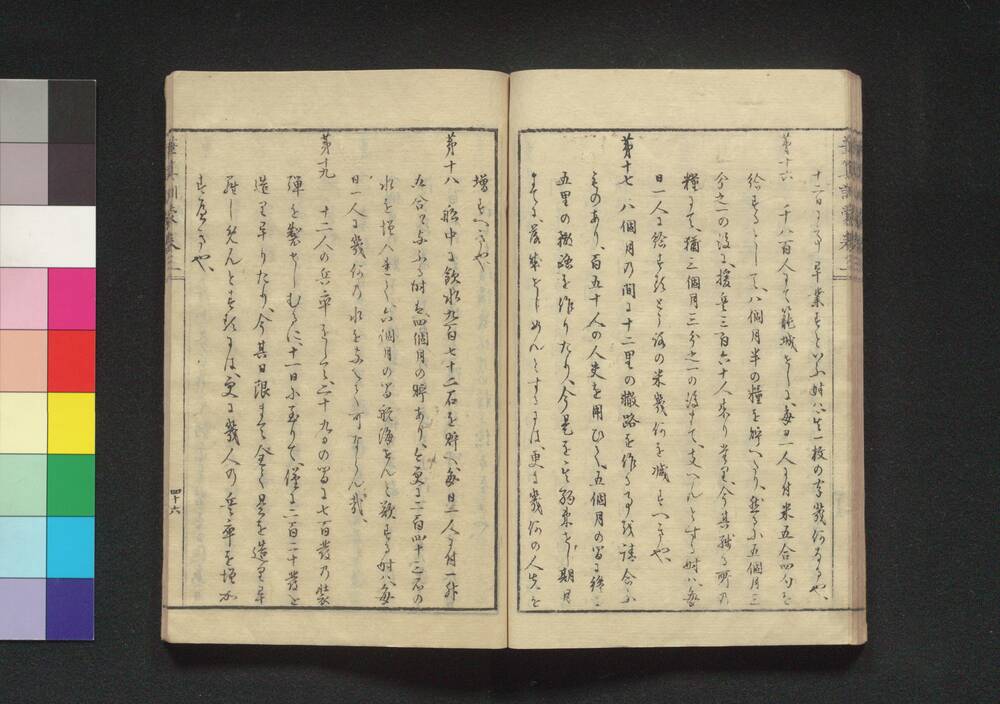 十二日にして卒業すといふ時ハ生一枚の字幾何なるや、
第十六 千八百人にて籠城をし、毎日一人に付米五合四勺を
給するとして、八個月半の糧を貯へり、然るに五個月三
分之一の後、援兵三百六十人来り
糧にて、猶三個月三分之一の後まて、支へんとする時ハ毎
日一人に給する所の米幾何を減すへきや、
第十七 八個月の間に十二里の轍路を作る事を請合ふ
ものあり、百五十人の人夫を用ひて、五個月の間に
五里の轍路を作りたり、今是を其約束せし期月
まてに、落成せしめんとするには、更に幾何の人夫を
増すへきや、
第十八 船中に飲水九百七十二石を貯へ、毎日一人に付一升
五合を与ふる時は、四個月の貯あり、今更に二百四十三石の
水を増入
 六個月の間航海せんと欲する時ハ毎
日一人に幾何の水を与へて可ならん哉、
第十九 十二人の兵卒をして、二十九日の間に七百発の装
弾を製せしむるに、十一日に至りて、僅に二百二十発を
造り卒りたり、今其日限まて全く是を造り卒
らしめんとするには、更に幾人の兵卒を増加
すへきや、
四十六